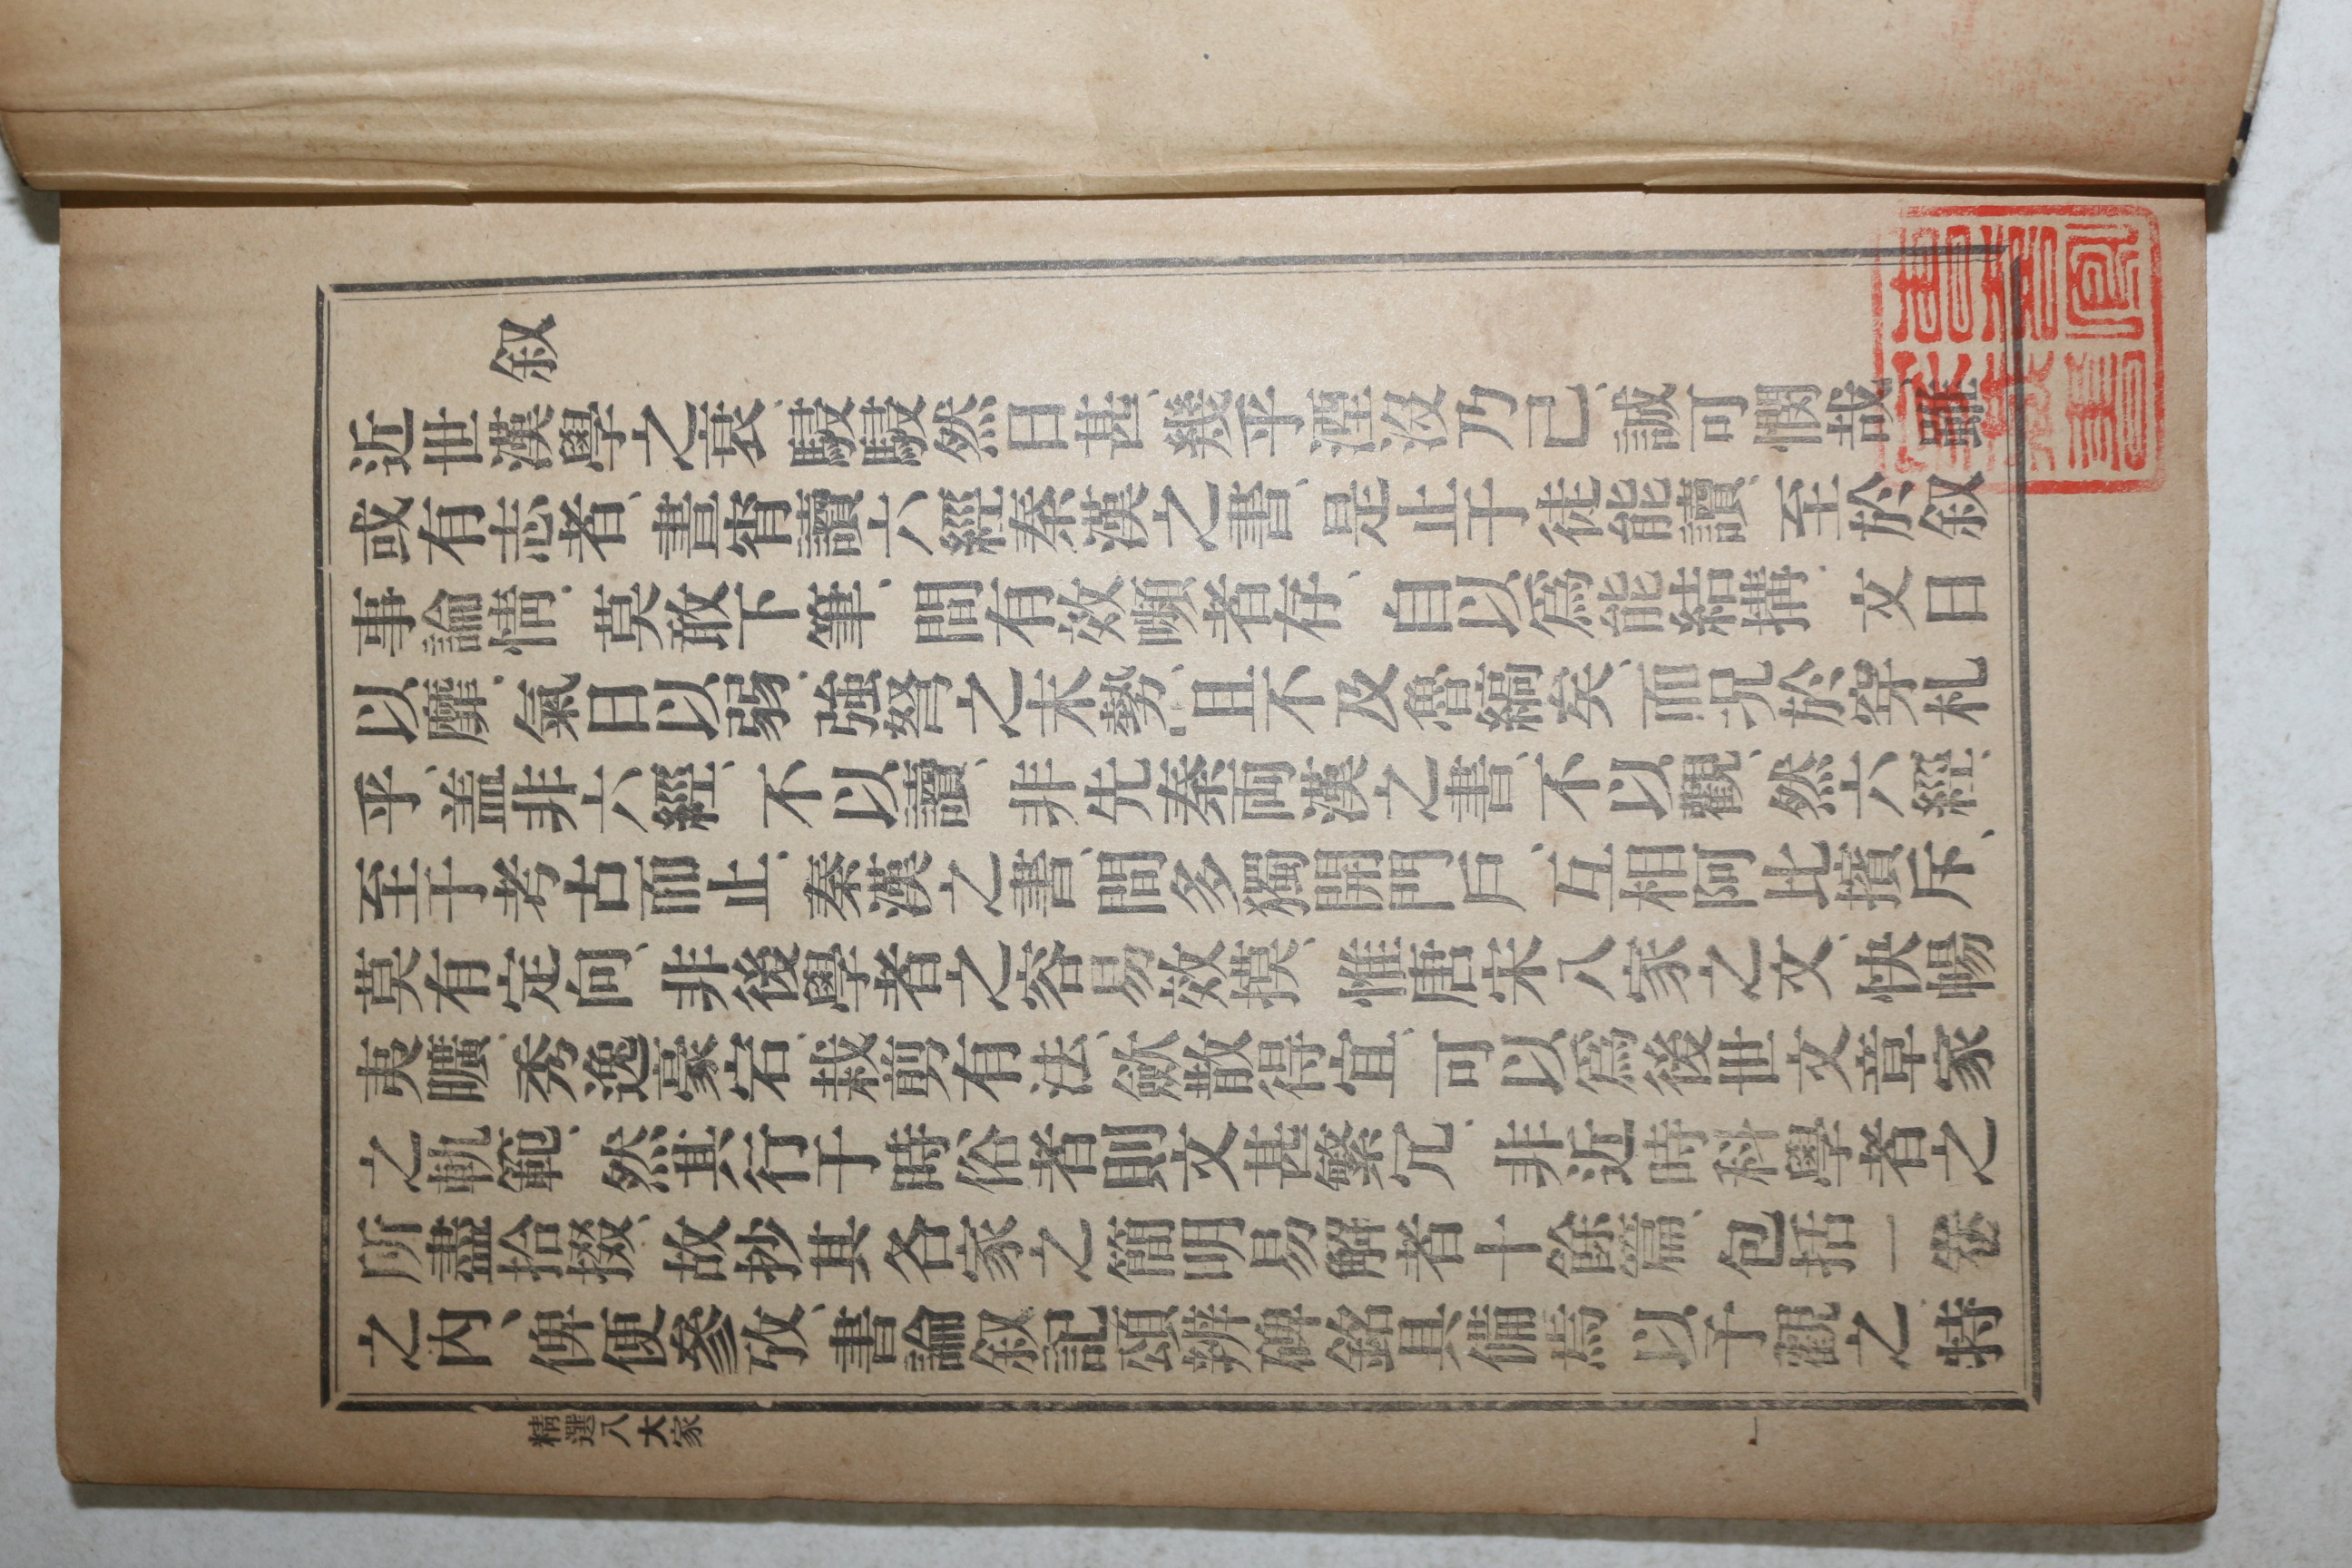 叙
近世漢學之衰、駸駸然日甚、幾乎湮沒乃已、誠可憫哉、雖
或有志者、晝宵讀六經秦漢之書、是止于徒能讀、至於叙
事論情、莫敢下筆、間有效嚬者存、自以爲能結搆、文日
以靡、氣日以弱、強弩之末勢、且不及魯縞矣、而况於穿札
乎、盖非六經、不以讀、非先秦両漢之書、不以觀、然六經、
至于考古而止、秦漢之書、間多獨開門戶、互相阿比擯斥、
莫有定向、非後學者之容易效摸、惟唐宋八家之文、快暢
夷曠、秀逸豪宕、裁剪有法、歛散得宜、可以爲後世文章家
之軌範、然其行于時俗者則文甚繁冗、非近時科學者之
所盡拾掇、故抄其各家之簡明易解者十餘篇、包括一卷
之內、俾便參攷、書論叙記頌辨碑銘具備焉、以予觀之、特
精選八大家
一